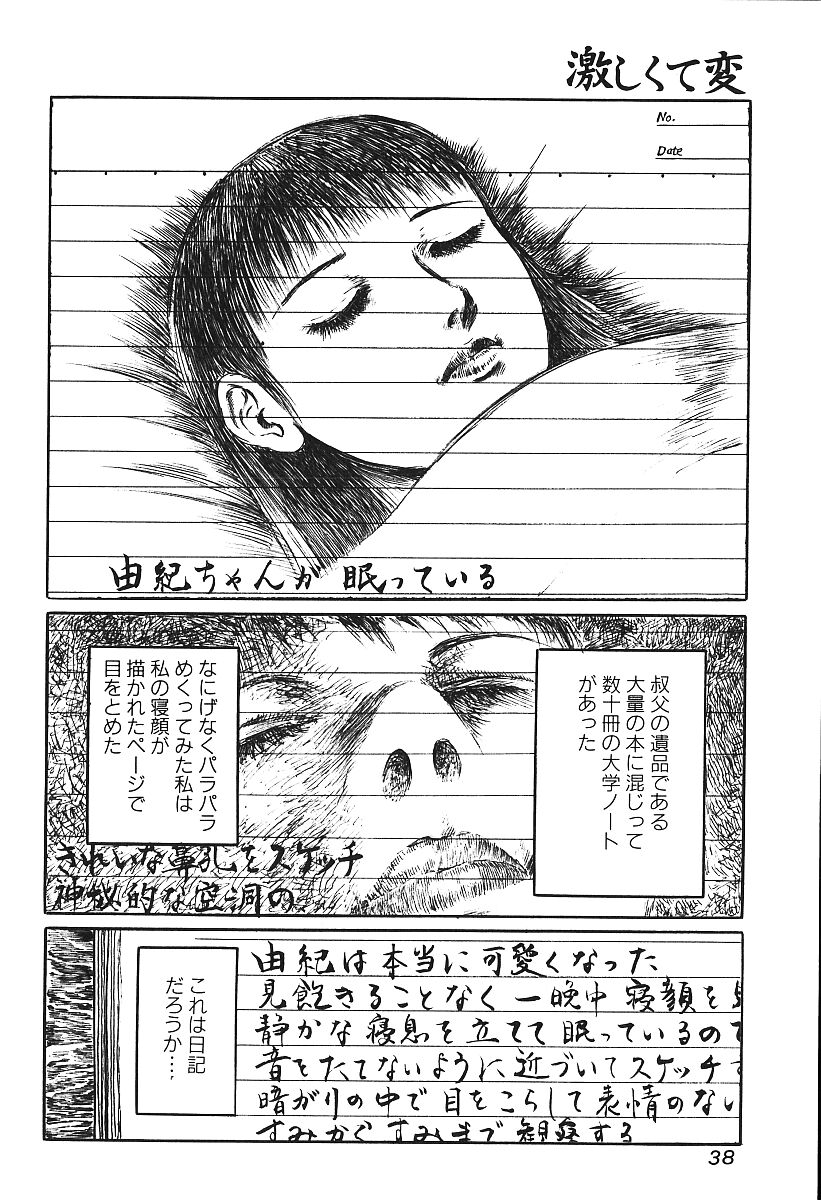 激しくて変
No.
Date
由紀ちゃんが 眠っている
叔父の遺品である
大量の本に混じって
数十冊の大学ノート
があった
なにげなくパラパラ
めくってみた私は
私の寝顔が
描かれたページで
目をとめた
きれいな鼻孔をスケッチ
神秘的な空洞の
これは日記
だろうか…
由紀は本当に可愛くなった
見飽きることなく 一晩中 寝顔を見
静かな寝息を立てて眠っているので
音をたてないように近づいてスケッチす
暗がりの中で目をこらして表情のない
すみからすみまで観察する
38